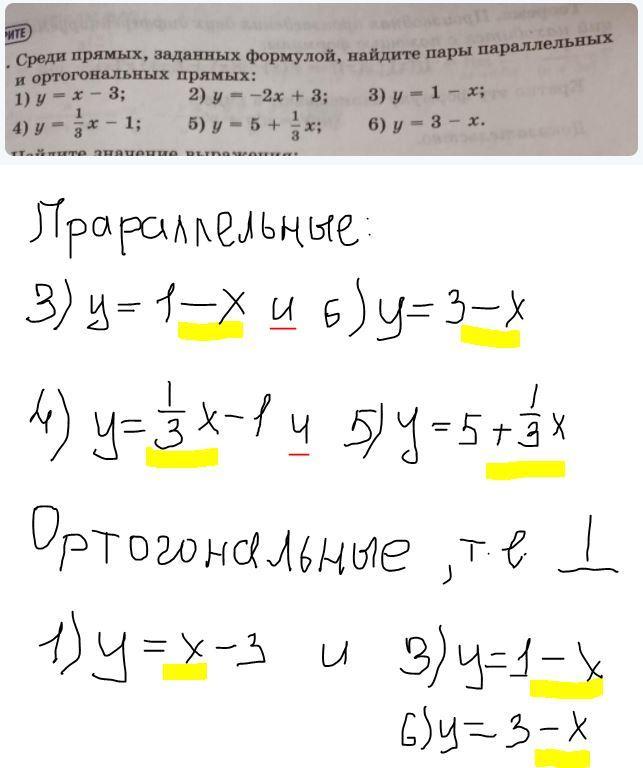 РИТЕ
. Среди прямых, заданных формулой, найдите пары параллельных
и ортогональных прямых:
1) y = x − 3; 2) y = −2x + 3; 3) y = 1 − x;
4) y = 1/3 x − 1; 5) y = 5 + 1/3 x; 6) y = 3 − x.
Найдите значение выражения:
Прараллельные:
3) y = 1 − x и 6) y = 3 − x
4) y = 1/3 x − 1 и 5) y = 5 + 1/3 x
Ортогональные, т.е. ⊥
1) y = x − 3 и 3) y = 1 − x
6) y = 3 − x